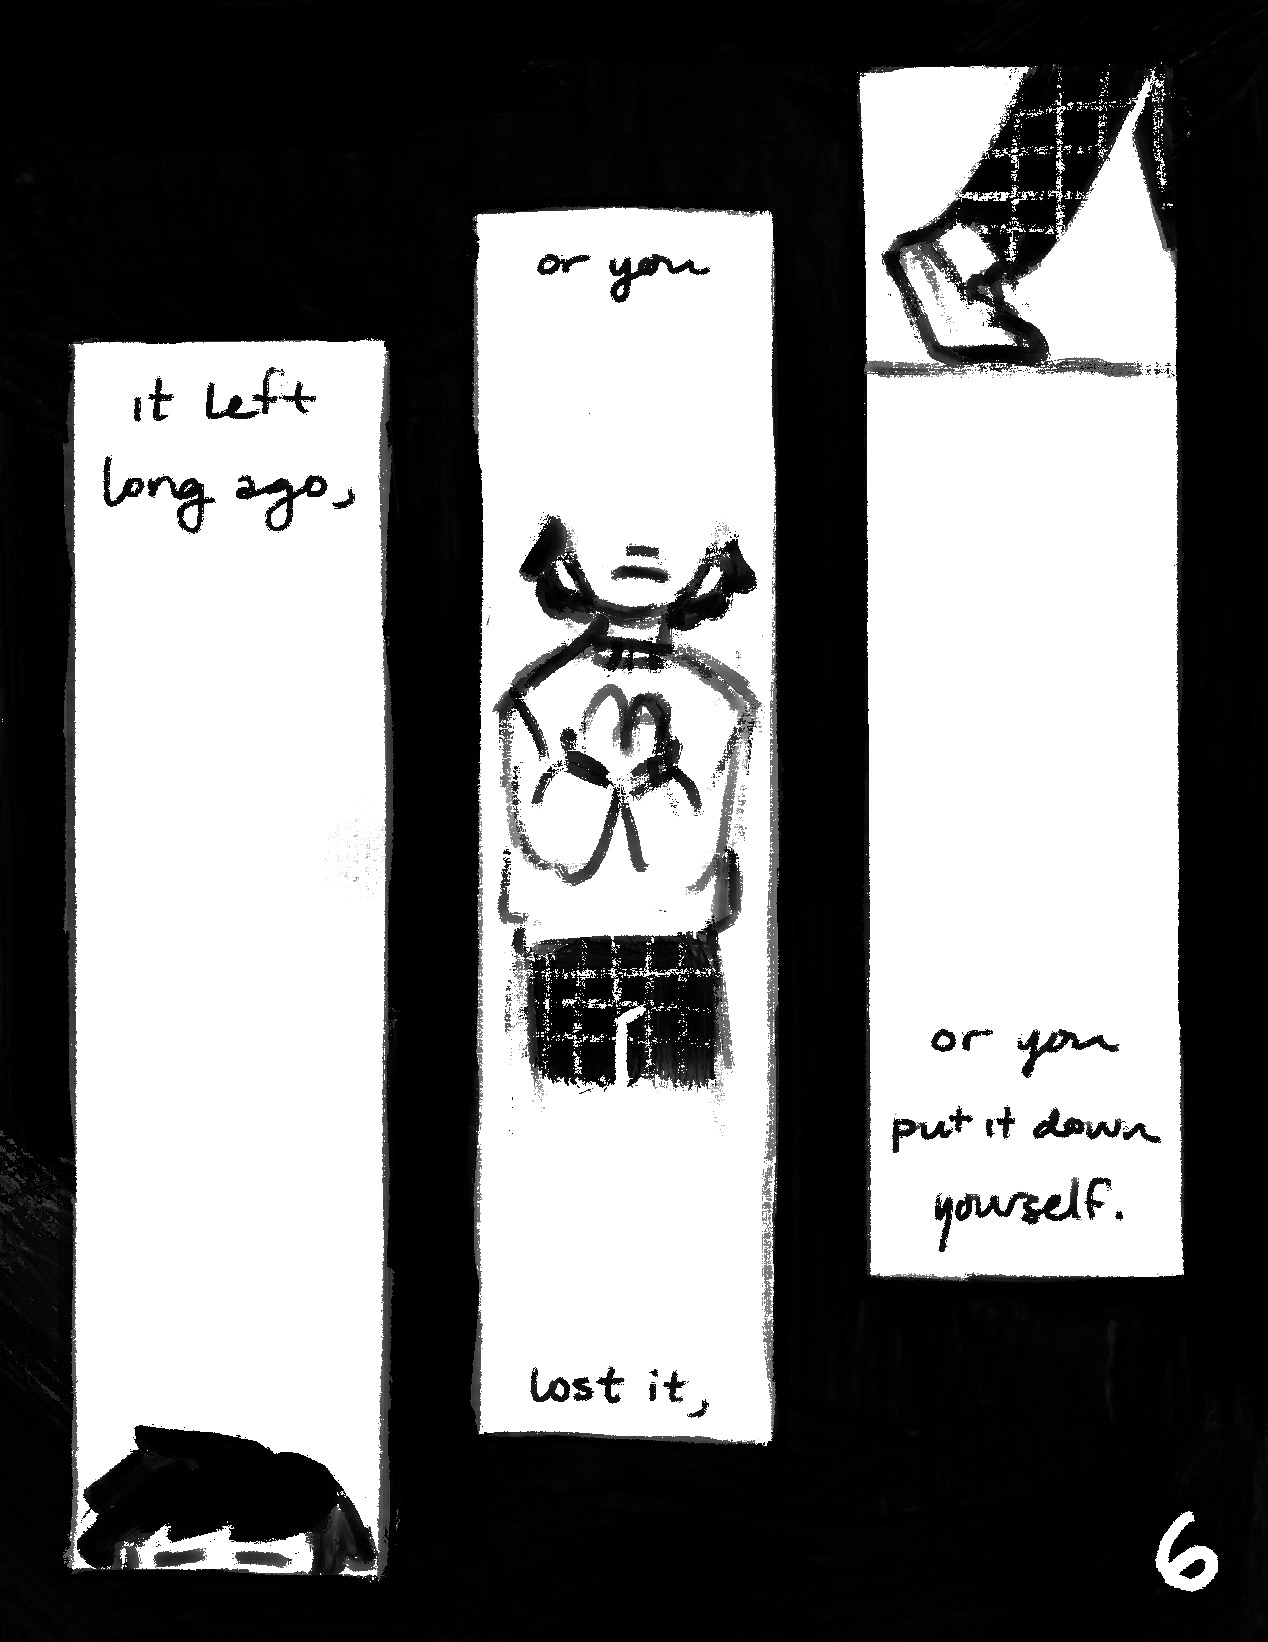 it left
long ago,
or you
lost it,
or you
put it down
yourself.
6